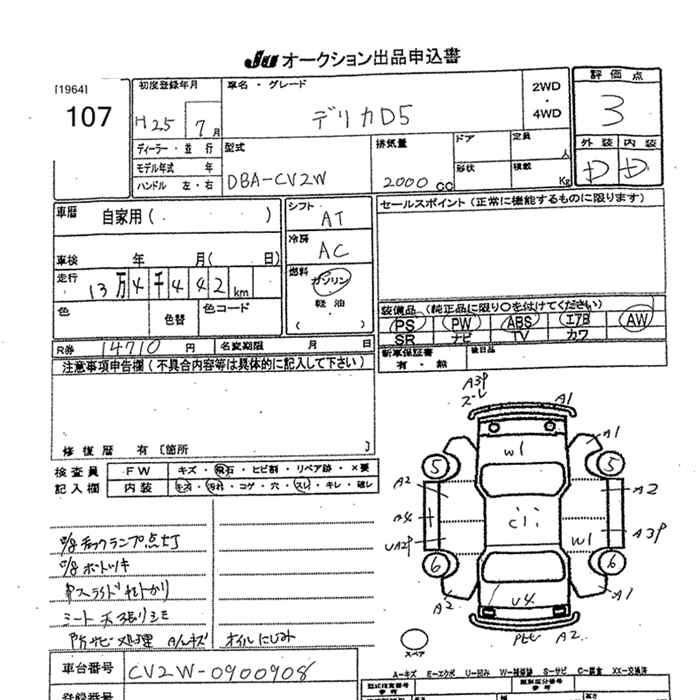 Ju オークション出品申込書
[1964]
107
初度登録年月
H25 7月
車名・グレード
デリカD5
2WD
・
4WD
評価点
3
外装 内装
D D
ディーラー・並行
モデル年式 年
ハンドル 左・右
型式
DBA-CV2W
排気量
2000 cc
ドア
形状
定員 人
積載 Kg
車歴 自家用( )
車検 年 月( 日)
走行 13万4千442km
色 色替 色コード
シフト AT
冷房 AC
燃料 ガソリン
軽油
( )
セールスポイント(正常に機能するものに限ります)
装備品 (純正品に限り〇を付けてください)
PS PW ABS エアB AW
SR ナビ TV カワ
R券 14710 円 名変期限 月 日
新車保証書 有・無 後日品
注意事項申告欄(不具合内容等は具体的に記入して下さい)
修復歴 有[箇所 ]
検査員 FW キズ・飛石・ヒビ割・リペア跡・×要
記入欄 内装 キズ・汚れ・コゲ・穴・スレ・キレ・破レ
チェックランプ点灯
シート 天張りヨゴレ
防サビ処理 A/Lキズ オイルにじみ
A3P
ズレ
A1
W1
A1
5
5
A2
A2
A4
Cii
UA2P
W1
A3P
6
6
A2
U4
A1
A2
スペア
車台番号 CV2W-0900908
A-キズ E-エクボ U-凹み W-補修跡 S-サビ C-腐食 XX-交換済
登録番号